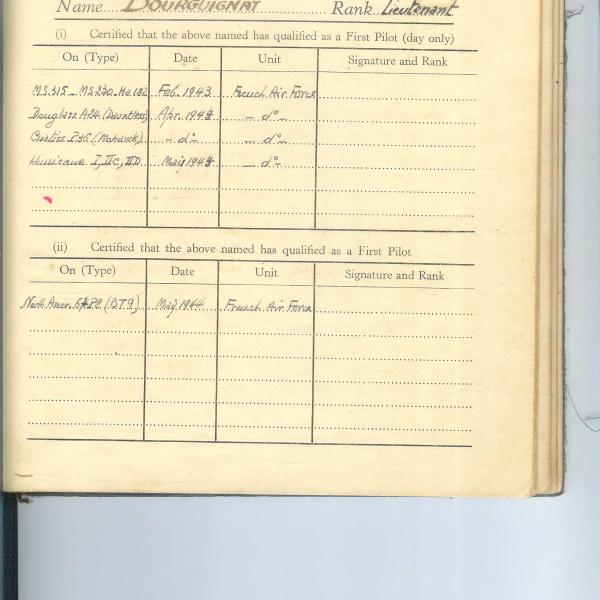 Name BOURGUIGNAT Rank Lieutenant
(i) Certified that the above named has qualified as a First Pilot (day only)
On (Type) Date Unit Signature and Rank
M.S.315_M.S.230_He.182 Feb. 1943 French Air Force
Douglass A24 (Dauntless) Apr. 1944 _ d°_
Curtiss P.36 (Mohawk) _ d°_ _ d°_
Hurricane I, IIC, IID May 1944 _ d°_
(ii) Certified that the above named has qualified as a First Pilot
On (Type) Date Unit Signature and Rank
North Amer. (BT9) May 1944 French Air Force